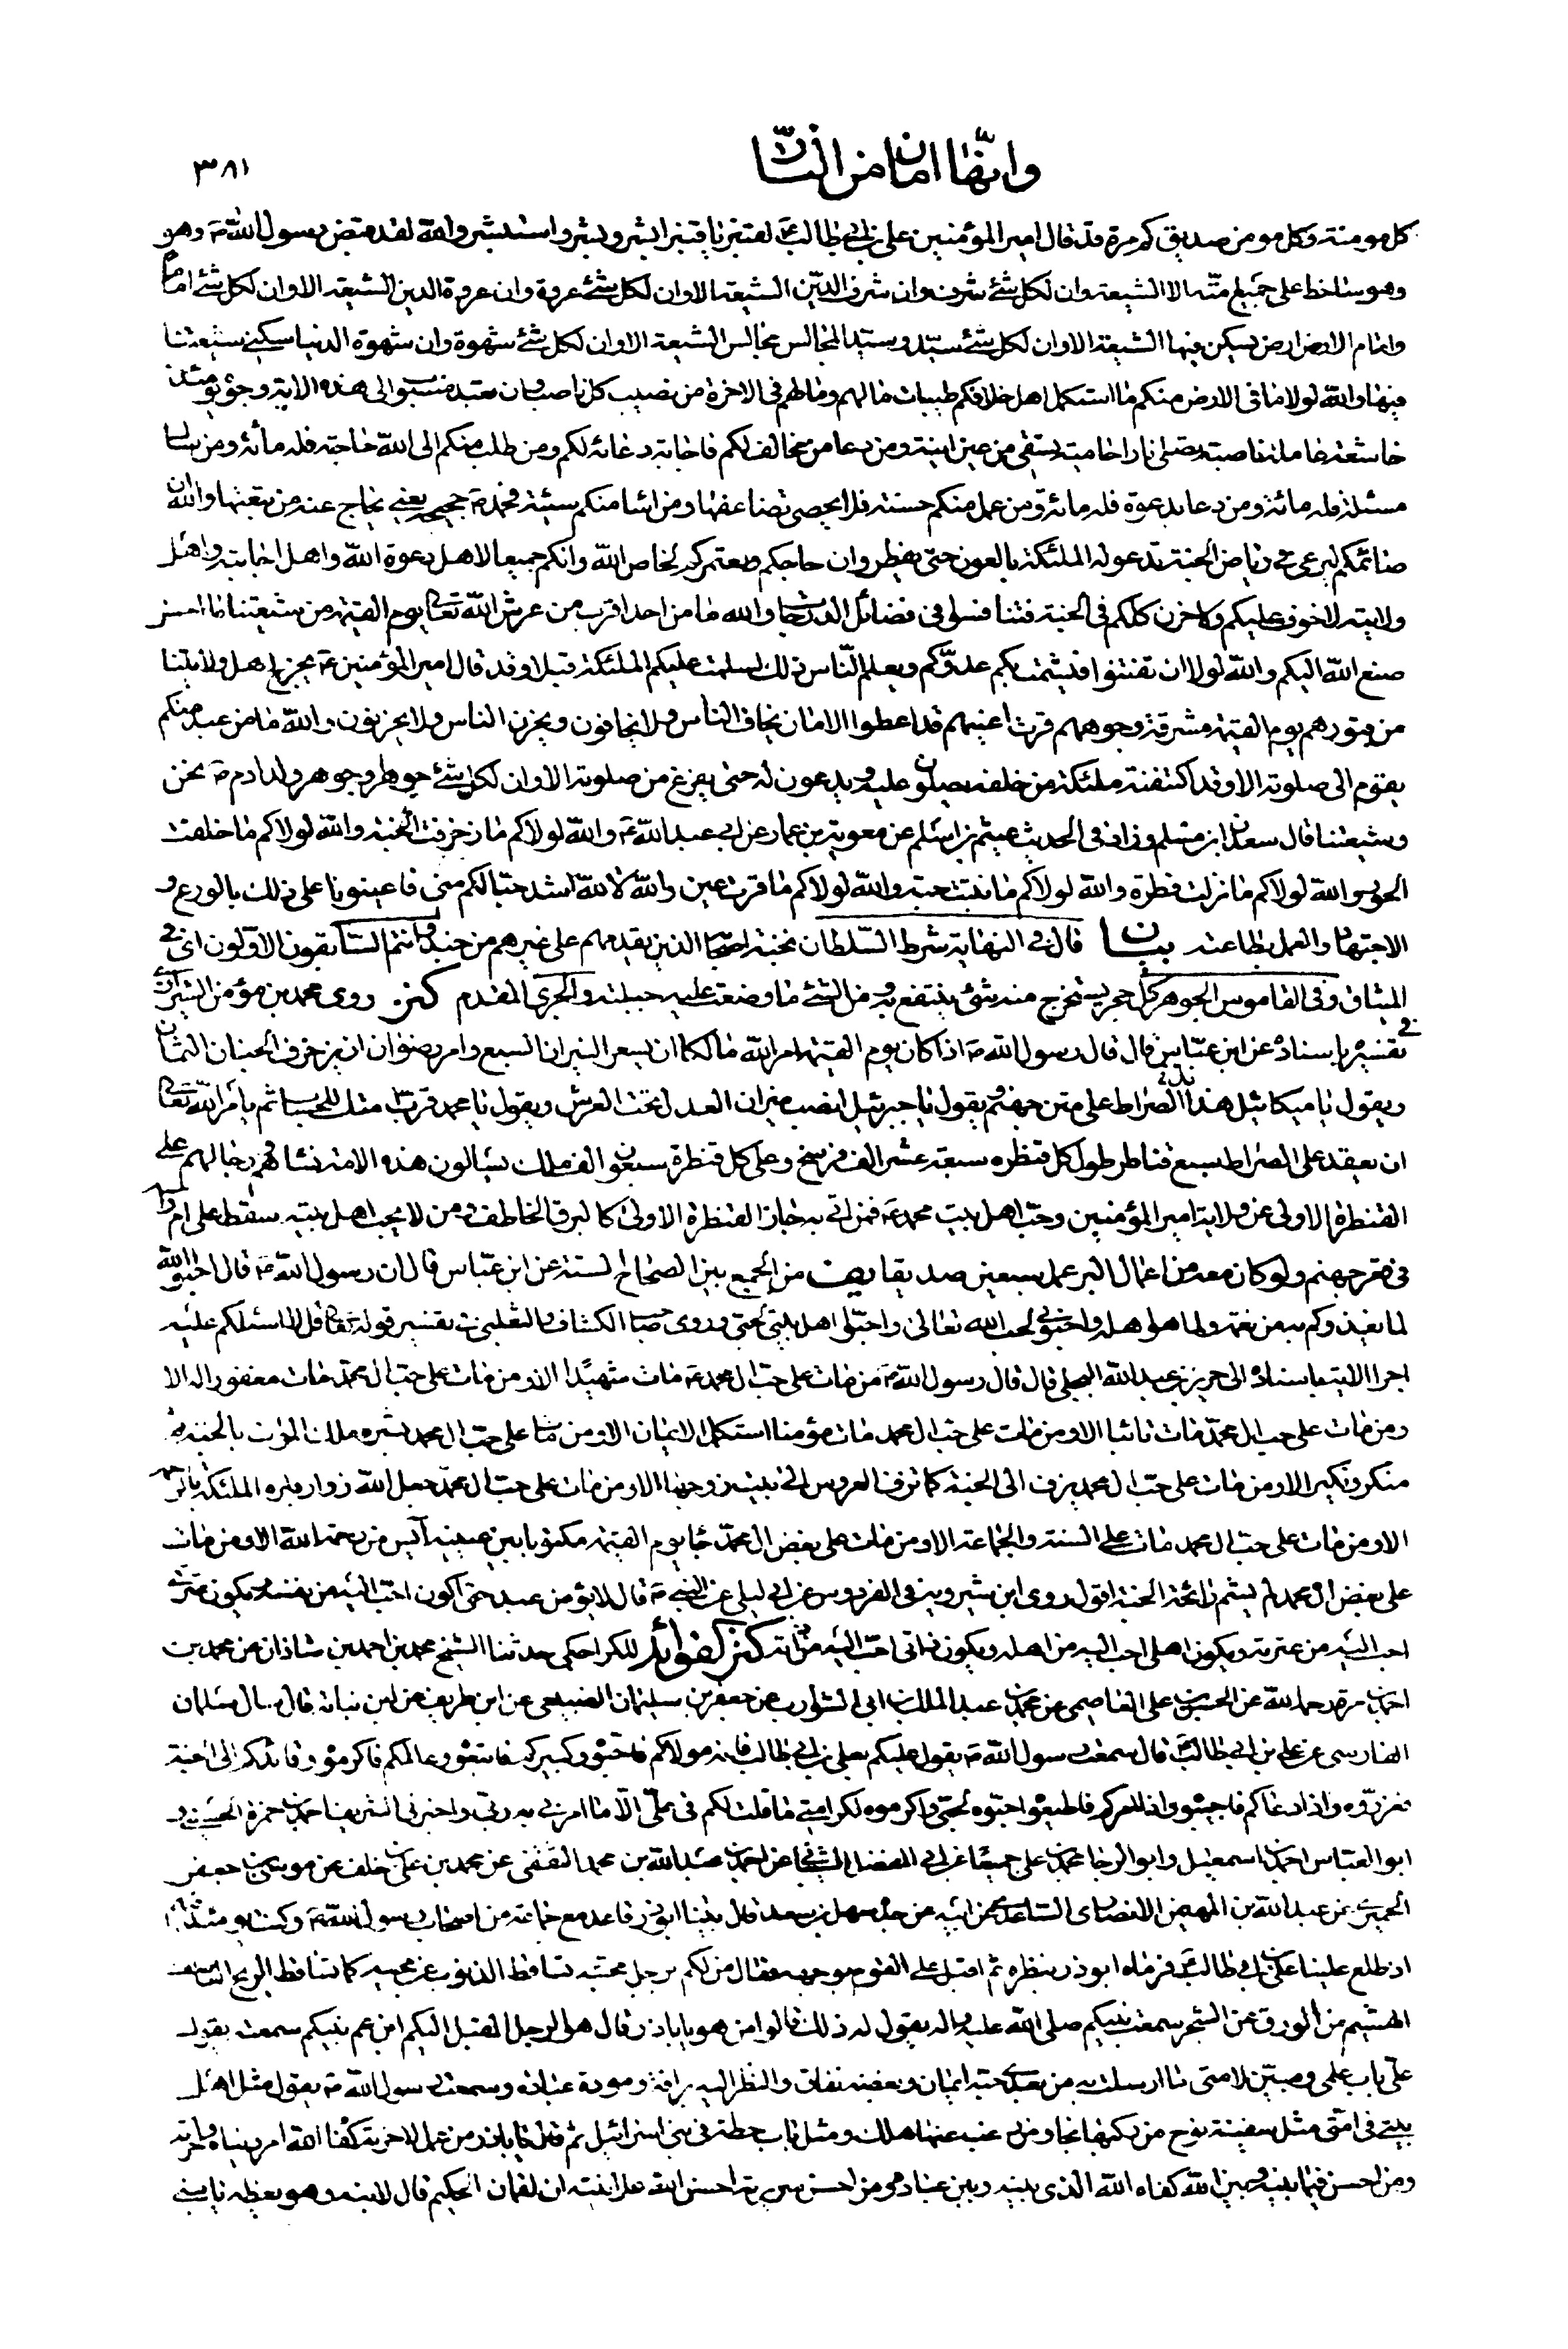 وانّها امان من النّار
٣٨١
كل مومنة وكل مومن صديق كم مرة قد قال امير المؤمنين علي بن ابي طالب ع لقنبر يا قنبر ابشر وبشر واستبشر والله لقد قبض رسول الله ص وهو
وهو ساخط على جميع امّته الا الشيعة وان لكل شئ شرف وان شرف الدّين الشيعة الا وان لكل شئ عروة وان عروة الدين الشيعة الا وان لكل شئ امام
وامام الارض ارض يسكن فيها الشيعة الا وان لكل شئ سيّد وسيّد المجالس مجالس الشيعة الا وان لكل شئ شهوة وان شهوة الدنيا سكنى شيعتنا
فيها والله لولا ما فى الارض منكم ما استكمل اهل خلافكم طيبات ما لهم وما لهم فى الاخرة من نصيب كل ناصب وان تعبد منسوب الى هذه الاية وجوه يومئذ
خاشعة عاملة ناصبة تصلى نارا حامية تسقى من عين انية ومن دعا من مخالف لكم فاجابة دعائه لكم ومن طلب منكم الى الله حاجة فله مائة ومن سال
مسئلة فله مائة ومن دعا بدعوة فله مائة ومن عمل منكم حسنة فلا يحصى تضاعفها ومن اساء منكم سيئة فمحمد ص حجيجه يعنى يحاج عنه من تبعتها والله ان
صائمكم ليرعى فى رياض الجنة تدعو له الملئكة بالعون حتى يفطر وان حاجكم ومعتمركم لخاص الله وانكم جميعا لاهل دعوة الله واهل اجابته واهل
ولايته لا خوف عليكم ولا حزن كلكم فى الجنة فتنافسوا فى فضائل الدرجات والله ما من احد اقرب من عرش الله تعالى يوم القيمة من شيعتنا ما احسن
صنع الله اليكم والله لولا ان تفتنوا فيشمت بكم عدوّكم ويعلم النّاس ذلك لسلمت عليكم الملئكة قبلا وقد قال امير المؤمنين ع يخرج اهل ولايتنا
من قبورهم يوم القيمة مشرقة وجوههم قرت اعينهم قد اعطوا الامان يخاف الناس ولا يخافون ويحزن الناس ولا يحزنون والله ما من عبد منكم
يقوم الى صلوته الا وقد اكتنفته ملئكة من خلفه يصلون عليه ويدعون له حتى يفرغ من صلوته الا وان لكل شئ جوهر وجوهر ولد ادم ص نحن
وشيعتنا قال سعدان بن مسلم وزاد فى الحديث عيثم بن اسلم عن معوية بن عمار عن ابي عبد الله ع والله لولاكم ما زخرفت الجنة والله لولاكم ما خلقت
الحور والله لولاكم ما نزلت قطرة والله لولاكم ما نبتت حبة والله لولاكم ما قرت عين والله لالله اشد حبا لكم منى فاعينونا على ذلك بالورع و
الاجتهاد والعمل بطاعته بيان قال فى النهاية شرط السّلطان نخبة اصحابه الذين يقدمهم على غيرهم من جنده وانتم السّابقون الاوّلون اى فى
الميثاق وفى القاموس الجوهر كل حجر يستخرج منه شئ ينتفع به ومن الشئ ما وضعت عليه جبلته والجرى المقدم كنز روى محمد بن مؤمن الشيرازى
فى تفسيره باسناده عن ابن عبّاس قال قال رسول الله ص اذا كان يوم القيمة امر الله مالكا ان يسعر النيران السبع وامر رضوان ان يزخرف الجنان الثمان
ويقول يا ميكائيل مد الصّراط على متن جهنم ويقول يا جبرئيل انصب ميزان العدل تحت العرش ويقول يا محمد قرب امتك للحساب ثم يامر الله تعالى
ان يعقد على الصراط سبع قناطر طول كل قنطره سبعة عشر الف فرسخ وعلى كل قنطرة سبعون الف ملك يسالون هذه الامة نساءهم ورجالهم على
القنطرة الاولى عن ولاية امير المؤمنين وحب اهل بيت محمد ع فمن اتى به جاز القنطرة الاولى كالبرق الخاطف ومن لا يحب اهل بيته سقط على ام راسه
فى قعر جهنم ولو كان معه من اعمال البر عمل سبعين صديقا يف من الجمع بين الصحاح الستة عن ابن عبّاس قال ان رسول الله ص قال احبوا الله
لما يغذوكم به من نعمة ولما هو اهله واحبّونى لحب الله تعالى واحبّوا اهل بيتى لحبى وروى صاحب الكشاف والثعلبى فى تفسير قوله تعالى قل لا اسئلكم عليه
اجرا الاية باسناده الى جرير بن عبد الله البجلى قال قال رسول الله ص من مات على حب ال محمد ع مات شهيدًا الا ومن مات على حبّ ال محمّد مات مغفورا له الا
ومن مات على حب ال محمّد مات تائبا الا ومن مات على حبّ ال محمد مات مؤمنا استكمل الايمان الا ومن مات على حبّ ال محمد بشره ملك الموت بالجنة ثم
منكر ونكير الا ومن مات على حبّ ال محمد يزف الى الجنة كما تزف العروس الى بيت زوجها الا ومن مات على حب ال محمّد جعل الله زوار قبره الملئكة بالرحمة
الا ومن مات على حب ال محمد مات على السنة والجماعة الا ومن مات على بغض ال محمّد جاء يوم القيمة مكتوبا بين عينيه آيس من رحمة الله الا ومن مات
على بغض ال محمد لم يشم رائحة الجنة اقول روى ابن شيرويه فى الفردوس عن ابي ليلى عن النبي ص قال لا يؤمن عبد حتى اكون احبّ اليه من نفسه ويكون عترتى
احب اليه من عترته ويكون اهلى احب اليه من اهله ويكون ذاتى احبّ اليه من ذاته كنز الفوائد للكراجكى حدثنا الشيخ محمد بن احمد بن شاذان عن محمد بن
احمد بن مرة رحمه الله عن الحسن بن على العاصمى عن محمد بن عبد الملك بن ابي الشوارب عن جعفر بن سليمان الضبيعى عن ابن طريف عن ابن نباتة قال سال سلمان
الفارسى عن على بن ابي طالب ع قال سمعت رسول الله ص يقول عليكم بعلى بن ابي طالب فانه مولاكم فاحبّوه وكبيركم فاتبعوه وعالمكم فاكرموه وقائدكم الى الجنة
فعزروه واذا دعاكم فاجيبوه واذا امركم فاطيعوه احبّوه لحبّى واكرموه لكرامتى ما قلت لكم فى على الّا ما امرنى به ربّى واخبرنى الشريف احمد بن حمزة الحسينى و
ابو العباس احمد بن اسمعيل وابو الرجا محمد بن على جميعًا عن ابي المفضل الشيبانى عن احمد بن عبد الله بن محمد الثقفى عن محمد بن على بن خلف عن موسى بن جعفر
الحميرى عن عبد الله بن المهيمن الانصارى الساعدى عن ابيه عن جده سهل بن سعد قال بينا ابوذر قاعد مع جماعة من اصحاب رسول الله ص وكنت يومئذ
اذ طلع علينا على بن ابي طالب ع فرماه ابوذر بنظره ثم اقبل على القوم بوجهه فقال من لكم برجل محبّته تساقط الذنوب عن محبيه كما تساقط الريح العاصف
الهشيم من الورق عن الشجر سمعت نبيكم صلى الله عليه واله يقول له ذلك قالوا من هو يا اباذر قال هو الرجل المقبل اليكم ابن عم نبيكم سمعته يقول
علىّ باب علمى ومبيّن لامتى ما ارسلت به من بعدى حبّه ايمان وبغضه نفاق والنظر اليه برافة ومودة عبادة وسمعت رسول الله ص يقول مثل اهل
بيتى فى امّتى مثل سفينة نوح من ركبها نجا ومن رغب عنها هلك ومثل باب حطة فى بنى اسرائيل ثم قال يا باذر من عمل لاخرته كفاه الله امر دنياه واخرته
ومن احسن فيما بينه وبين الله كفاه الله الذى بينه وبين عباده ومن احسن سريرته احسن الله علانيته ان لقمان الحكيم قال لابنه وهو يعظه يا بنى